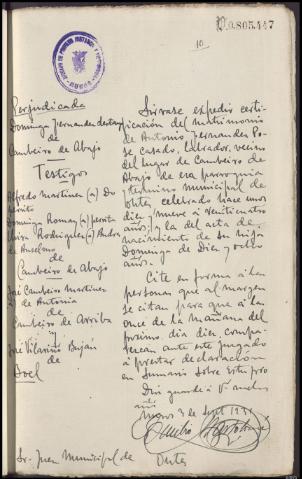 0.805.447
10
Perjudicada
Domingo Fernandez
de
Cambeiro de Abajo
Testigos
Alfredo Martinez (a)
Domingo Romay (a) perito
Rodriguez (a)
de Anselmo
de
Cambeiro de Abajo
José Cambeiro Martinez
de Antonia
de
Cambeiro de Arriba
y
José Vilariño Buján
de
Boel
Sirvase expedir certi-
ficación del matrimonio
de Antonio Fernandez Po-
se casado, labrador, vecino
del lugar de Cambeiro de
Abajo de esa parroquia
y termino municipal de
celebrado hace unos
diez y nueve a veinticuatro
años; y la del acta de
nacimiento de su hija
Domingo de Diez y ocho
años.
Cite en forma a las
personas que al margen
se citan para que a las
once de la mañana del
proximo dia diez, compa-
rezcan ante este juzgado
a prestar declaración
en sumario sobre
Dios guarde a V. muchos
años
3 de Sept 1931
Sr. Juez Municipal de Ordes